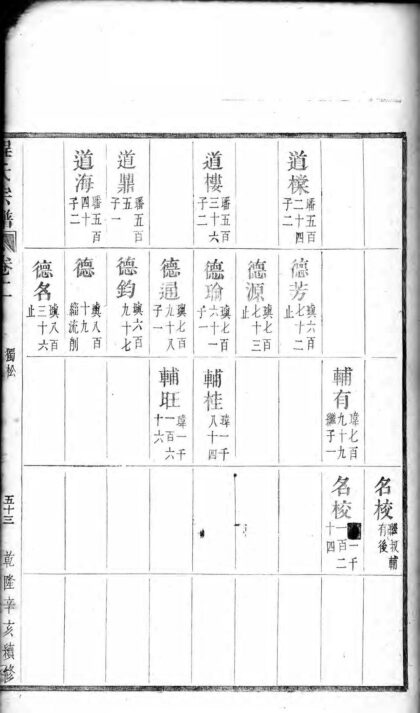 名校
繼叔輔
有後
道樑
璠五百
二十四
子二
德芳
璵六百
七十二
止
輔有
瑋七百
九十九
繼子一
名校
一千
一百二
十四
德源
璵七百
七十三
止
道樓
璠五百
三十六
子二
德瑜
璵七百
六十一
子一
輔桂
瑋一千
八十四
德通
璵七百
九十八
子一
輔旺
瑋一千
一百六
十六
道鼎
璠五百
五一
子一
德鈞
璵六百
九十七
道海
璠五百
四十
子二
德
璵八百
十九
緇流削
德名
璵八百
三十六
止
氏宗譜
卷十一
獨松
五十三
乾隆辛亥續修